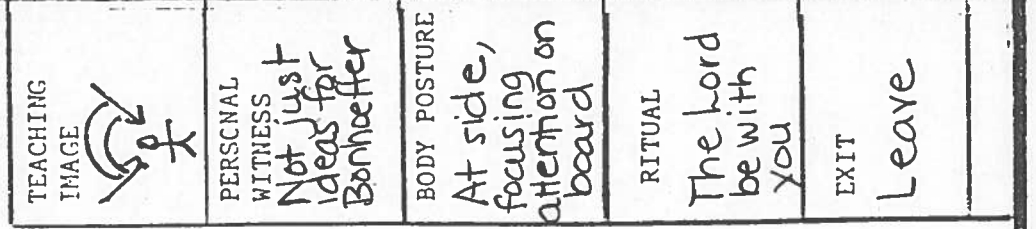 TEACHING
IMAGE
PERSCNAL
WITNESS
Not just
ideas for
Bonhoeffer
BODY POSTURE
At side,
focusing
attention on
board
RITUAL
The Lord
be with
you
EXIT
Leave